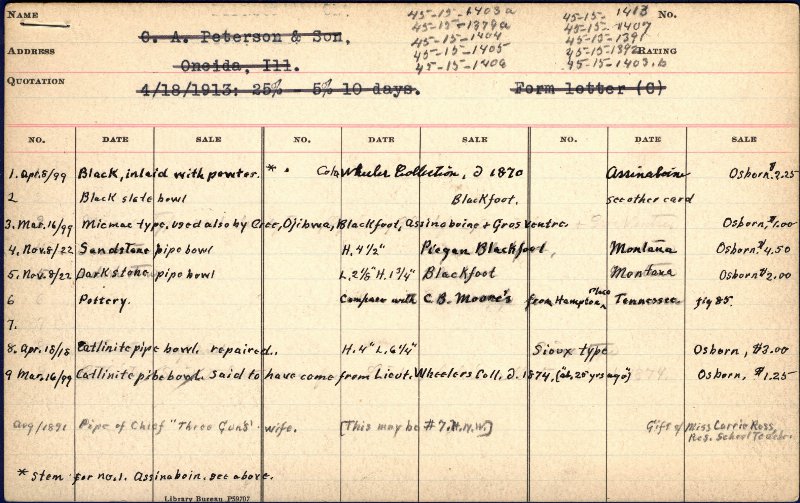 NAME 45-15-1403a 45-15-1413 No.
C. A. Peterson & Son, 45-15-1379a 45-15-1407
ADDRESS 45-15-1404 45-15-1391
Oneida, Ill. 45-15-1405 45-15-1392 RATING
QUOTATION 45-15-1406 45-15-1403.b
4/18/1913: 25% - 5% 10 days. Form letter (C)
NO. DATE SALE NO. DATE SALE NO. DATE SALE
1. Apr.8/99 Black, inlaid with pewter. * . Cola Wheeler Collection, d 1870 Assinaboine Osborn. $2.25
2 Black slate bowl Blackfoot. see other card
3. Mar.16/99 Micmac type, used also by Cree, Ojibwa, Blackfoot, Assinaboine + Gros ventre. Osborn, $1.00
4. Nov.8/22 Sandstone pipe bowl H. 4½" Piegan Blackfoot, Montana Osborn $4.50
5. Nov.8/22 Dark stone pipe bowl L. 2⅛" H. 1¾" Blackfoot Montana Osborn $2.00
6 Pottery. Compare with C.B. Moore's from Hampton Place Tennessee fig 85.
7.
8. Apr.18/18 Catlinite pipe bowl. repaired. H. 4" L. 6¼" Sioux type Osborn, $3.00
9 Mar.16/99 Catlinite pipe bowl. Said to have come from Lieut. Wheelers Coll. d. 1874, (ab. 25 yrs ago") Osborn, $1.25
Aug/1891 Pipe of Chief "Three Guns' wife. [This may be #7. H.N.W.] Gift of Miss Carrie Ross,
Res. School Teacher.
* Stem for no.1. Assinaboin. see above.
Library Bureau P59707